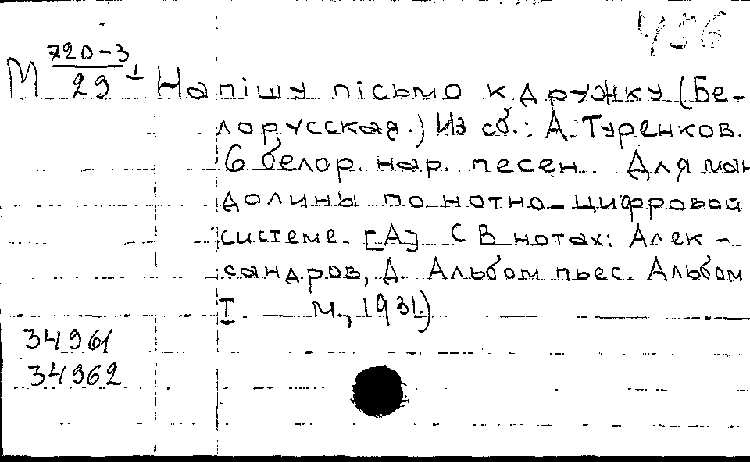 456
М 720-3
29 1
Напішу пісьмо к дружку (Бе-
лорусская.) Из сб.: А. Туренков.
6 белор. нар. песен. Для ман
долины по нотно-цифровой
системе. [А] С В нотах: Алек-
сандров, А. Альбом пьес. Альбом
I М., 1931)
34961
34962